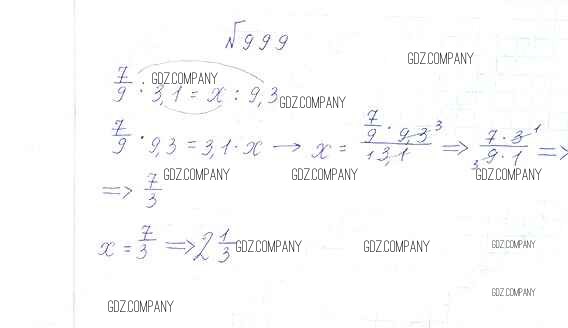 №999
GDZ.COMPANY
7/9 : 3,1 = x : 9,3
GDZ.COMPANY GDZ.COMPANY
7/9 · 9,3 = 3,1 · x → x = (7/9 · 9,3 3)/(1 3,1) => (7 · 3 1)/(3 9 · 1) =>
GDZ.COMPANY GDZ.COMPANY GDZ.COMPANY
=> 7/3
x = 7/3 => 2 1/3
GDZ.COMPANY GDZ.COMPANY GDZ.COMPANY
GDZ.COMPANY
GDZ.COMPANY